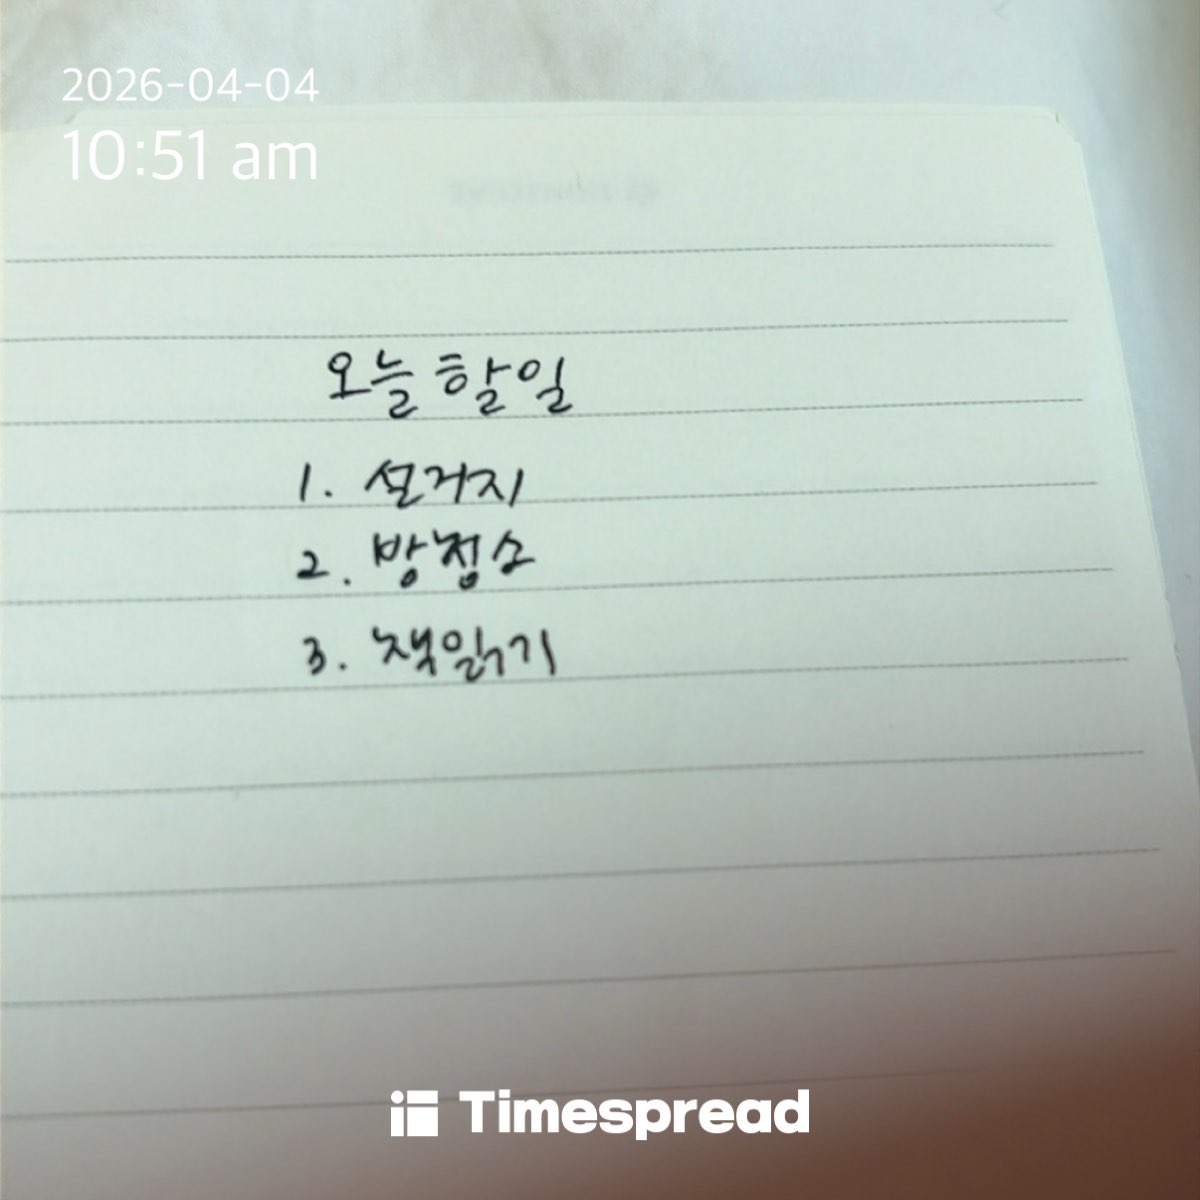 2026-04-04
10:51 am
오늘 할일
1. 설거지
2. 방청소
3. 책읽기
Timespread